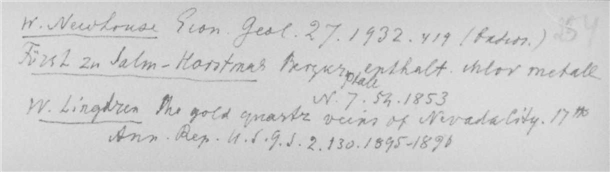 W. Newhouse Econ. Geol. 27. 1932. 419 254
Fürst zu Salm-Horstmar enthalt. chlor metall
N. 7. 54. 1853
W. Lindgren The gold quartz veins of Nevada City. 17th
Ann. Rep. U.S.G.S. 2. 130. 1895-1896